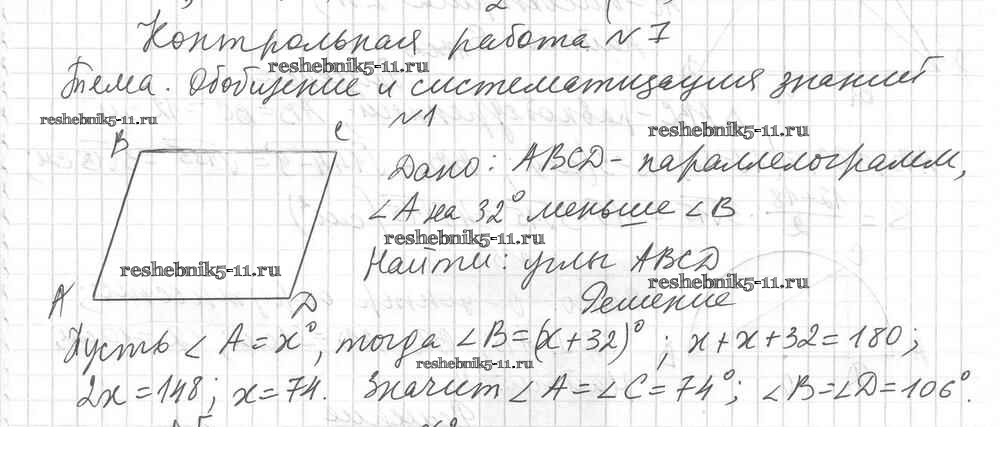 Контрольная работа №7
reshebnik5-11.ru
Тема. Обобщение и систематизация знаний
reshebnik5-11.ru
№1
reshebnik5-11.ru
B C
Дано: ABCD - параллелограмм,
∠A на 32° меньше ∠B
reshebnik5-11.ru
reshebnik5-11.ru
Найти: углы ABCD
reshebnik5-11.ru
A D
Решение
Пусть ∠A = x°, тогда ∠B = (x+32)°; x+x+32=180;
reshebnik5-11.ru
2x=148; x=74. Значит ∠A=∠C=74°; ∠B=∠D=106°.